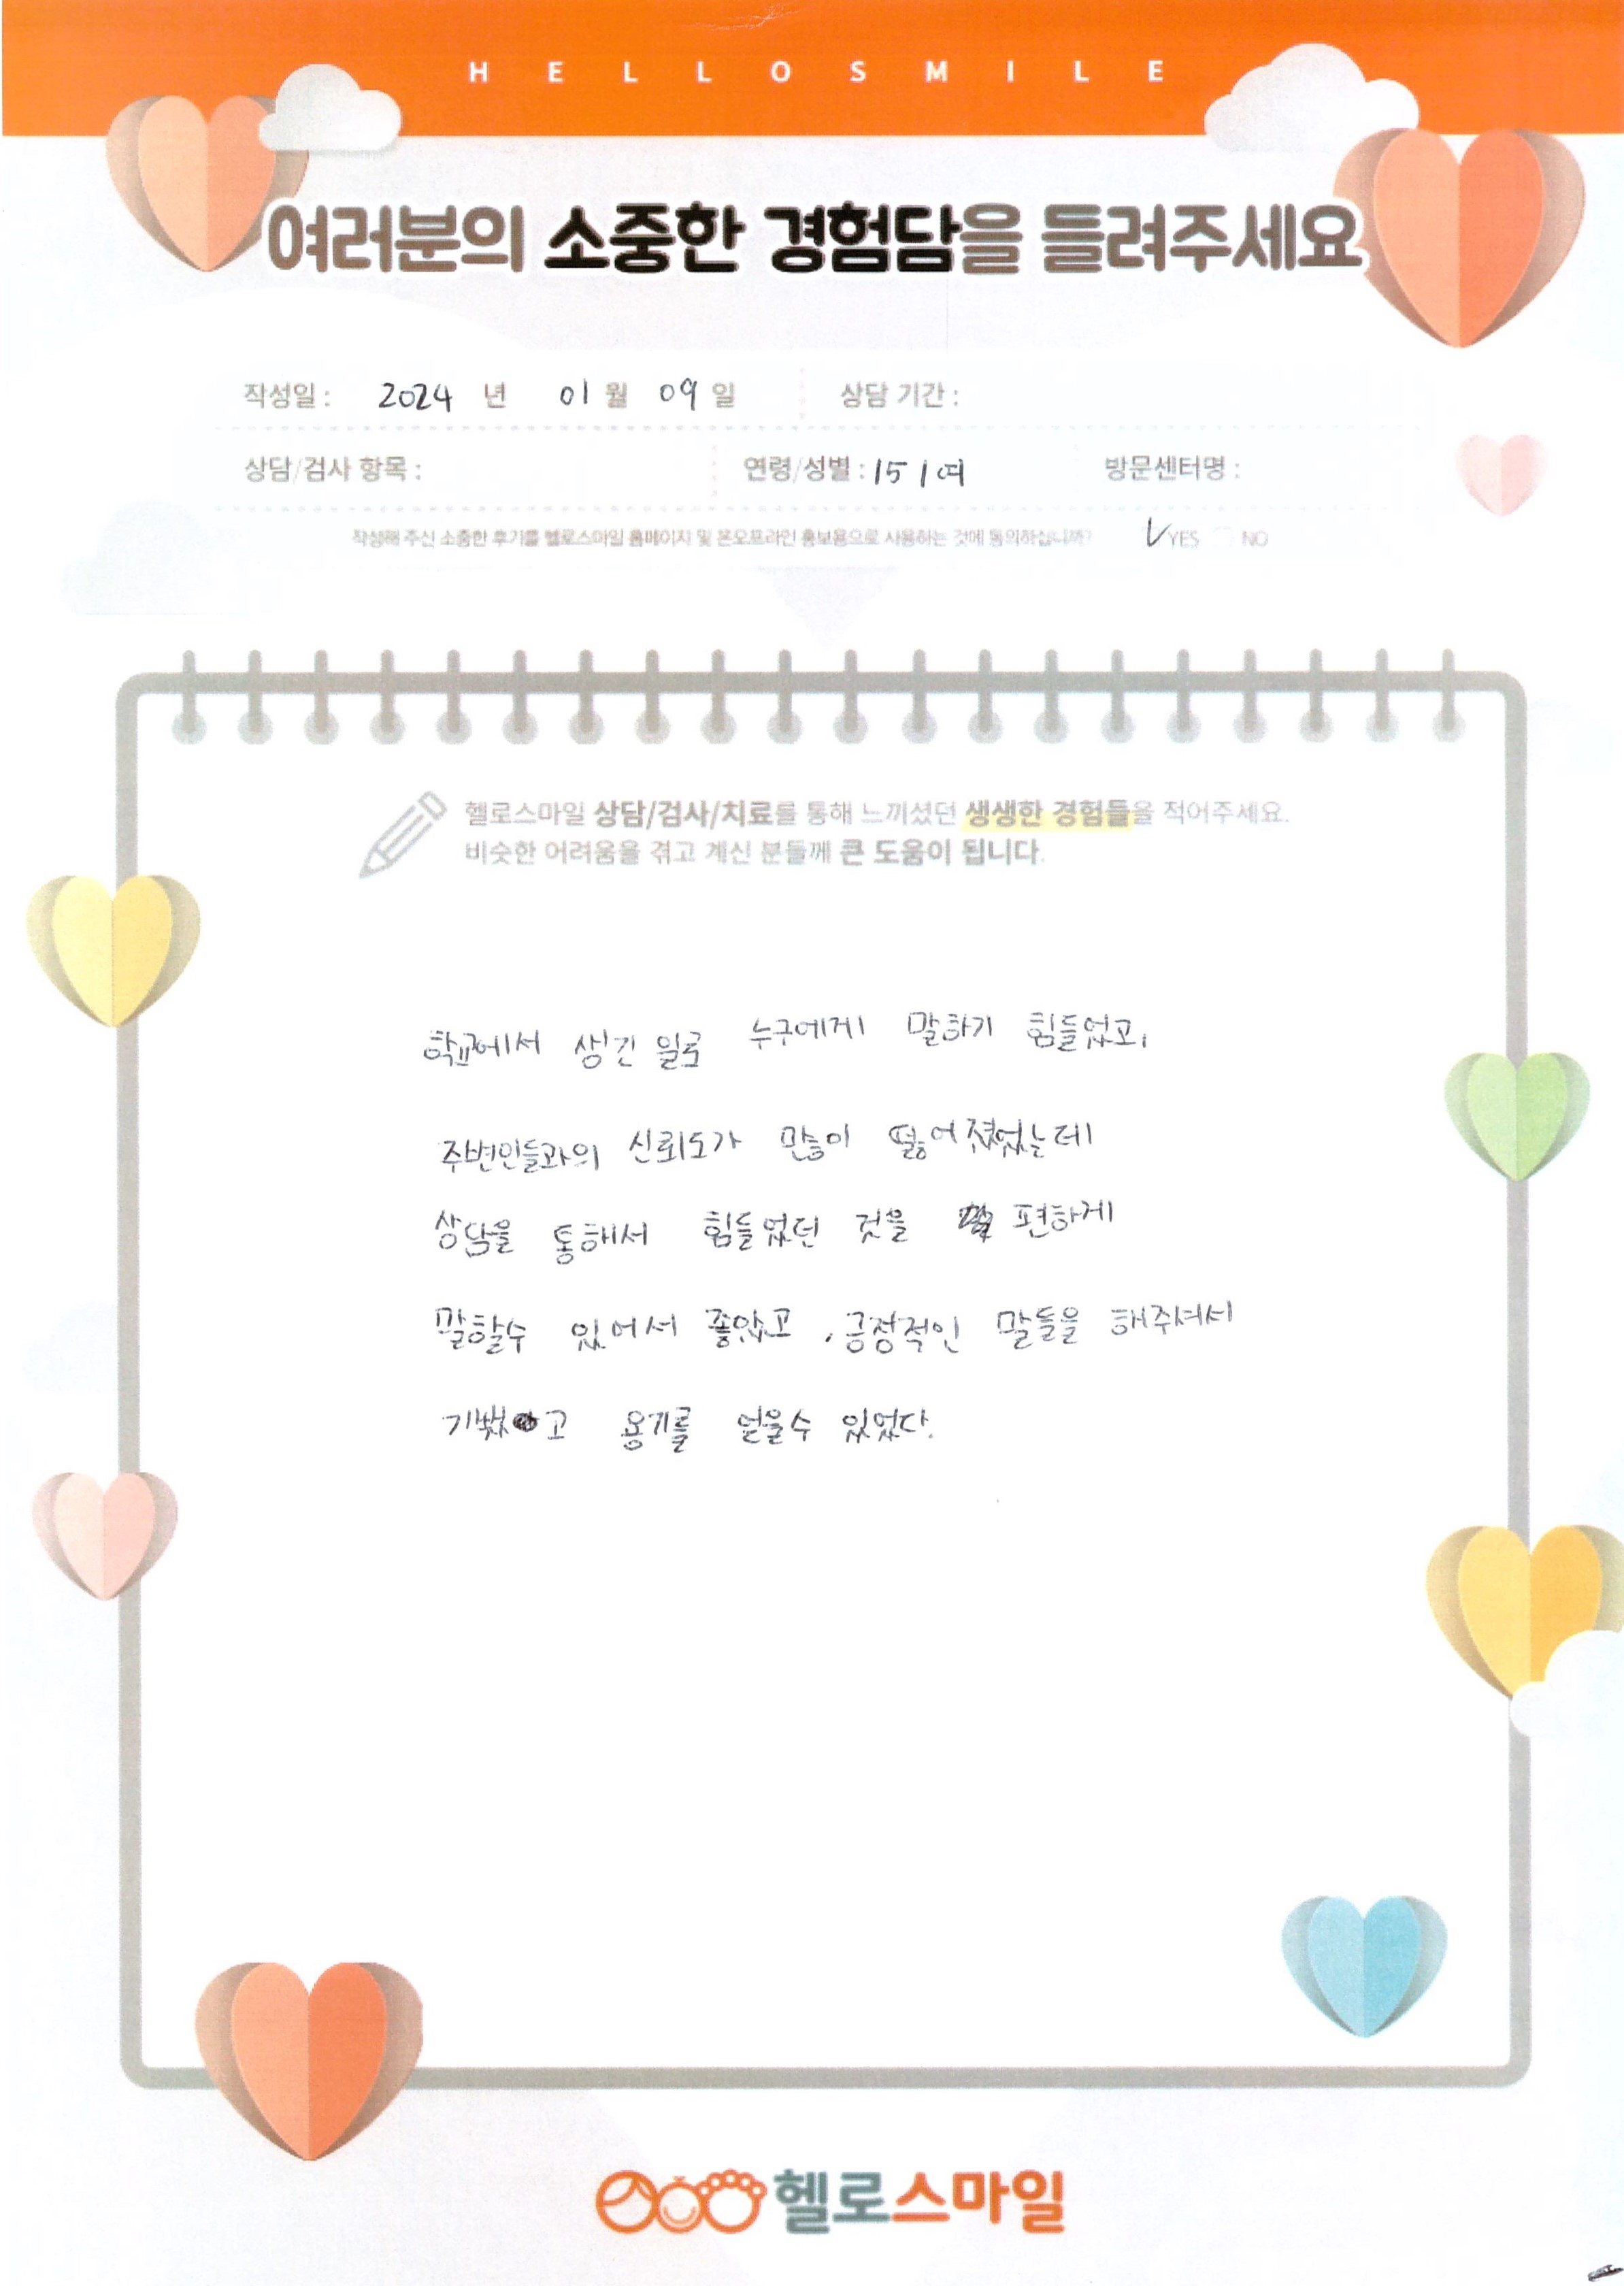 HELLOSMILE
여러분의 소중한 경험담을 들려주세요
작성일 : 2024 년 01 월 09 일 상담 기간 :
상담/검사 항목 : 연령/성별 : 15 / 여 방문센터명 :
작성해 주신 소중한 후기를 헬로스마일 홈페이지 및 온오프라인 홍보용으로 사용하는 것에 동의하십니까? YES NO
헬로스마일 상담/검사/치료를 통해 느끼셨던 생생한 경험들을 적어주세요.
비슷한 어려움을 겪고 계신 분들께 큰 도움이 됩니다.
학교에서 생긴 일로 누구에게 말하기 힘들었고,
주변인들과의 신뢰도가 많이 떨어졌었는데
상담을 통해서 힘들었던 것을 편하게
말할수 있어서 좋았고, 긍정적인 말들을 해주셔서
기뻤고 용기를 얻을수 있었다.
헬로스마일